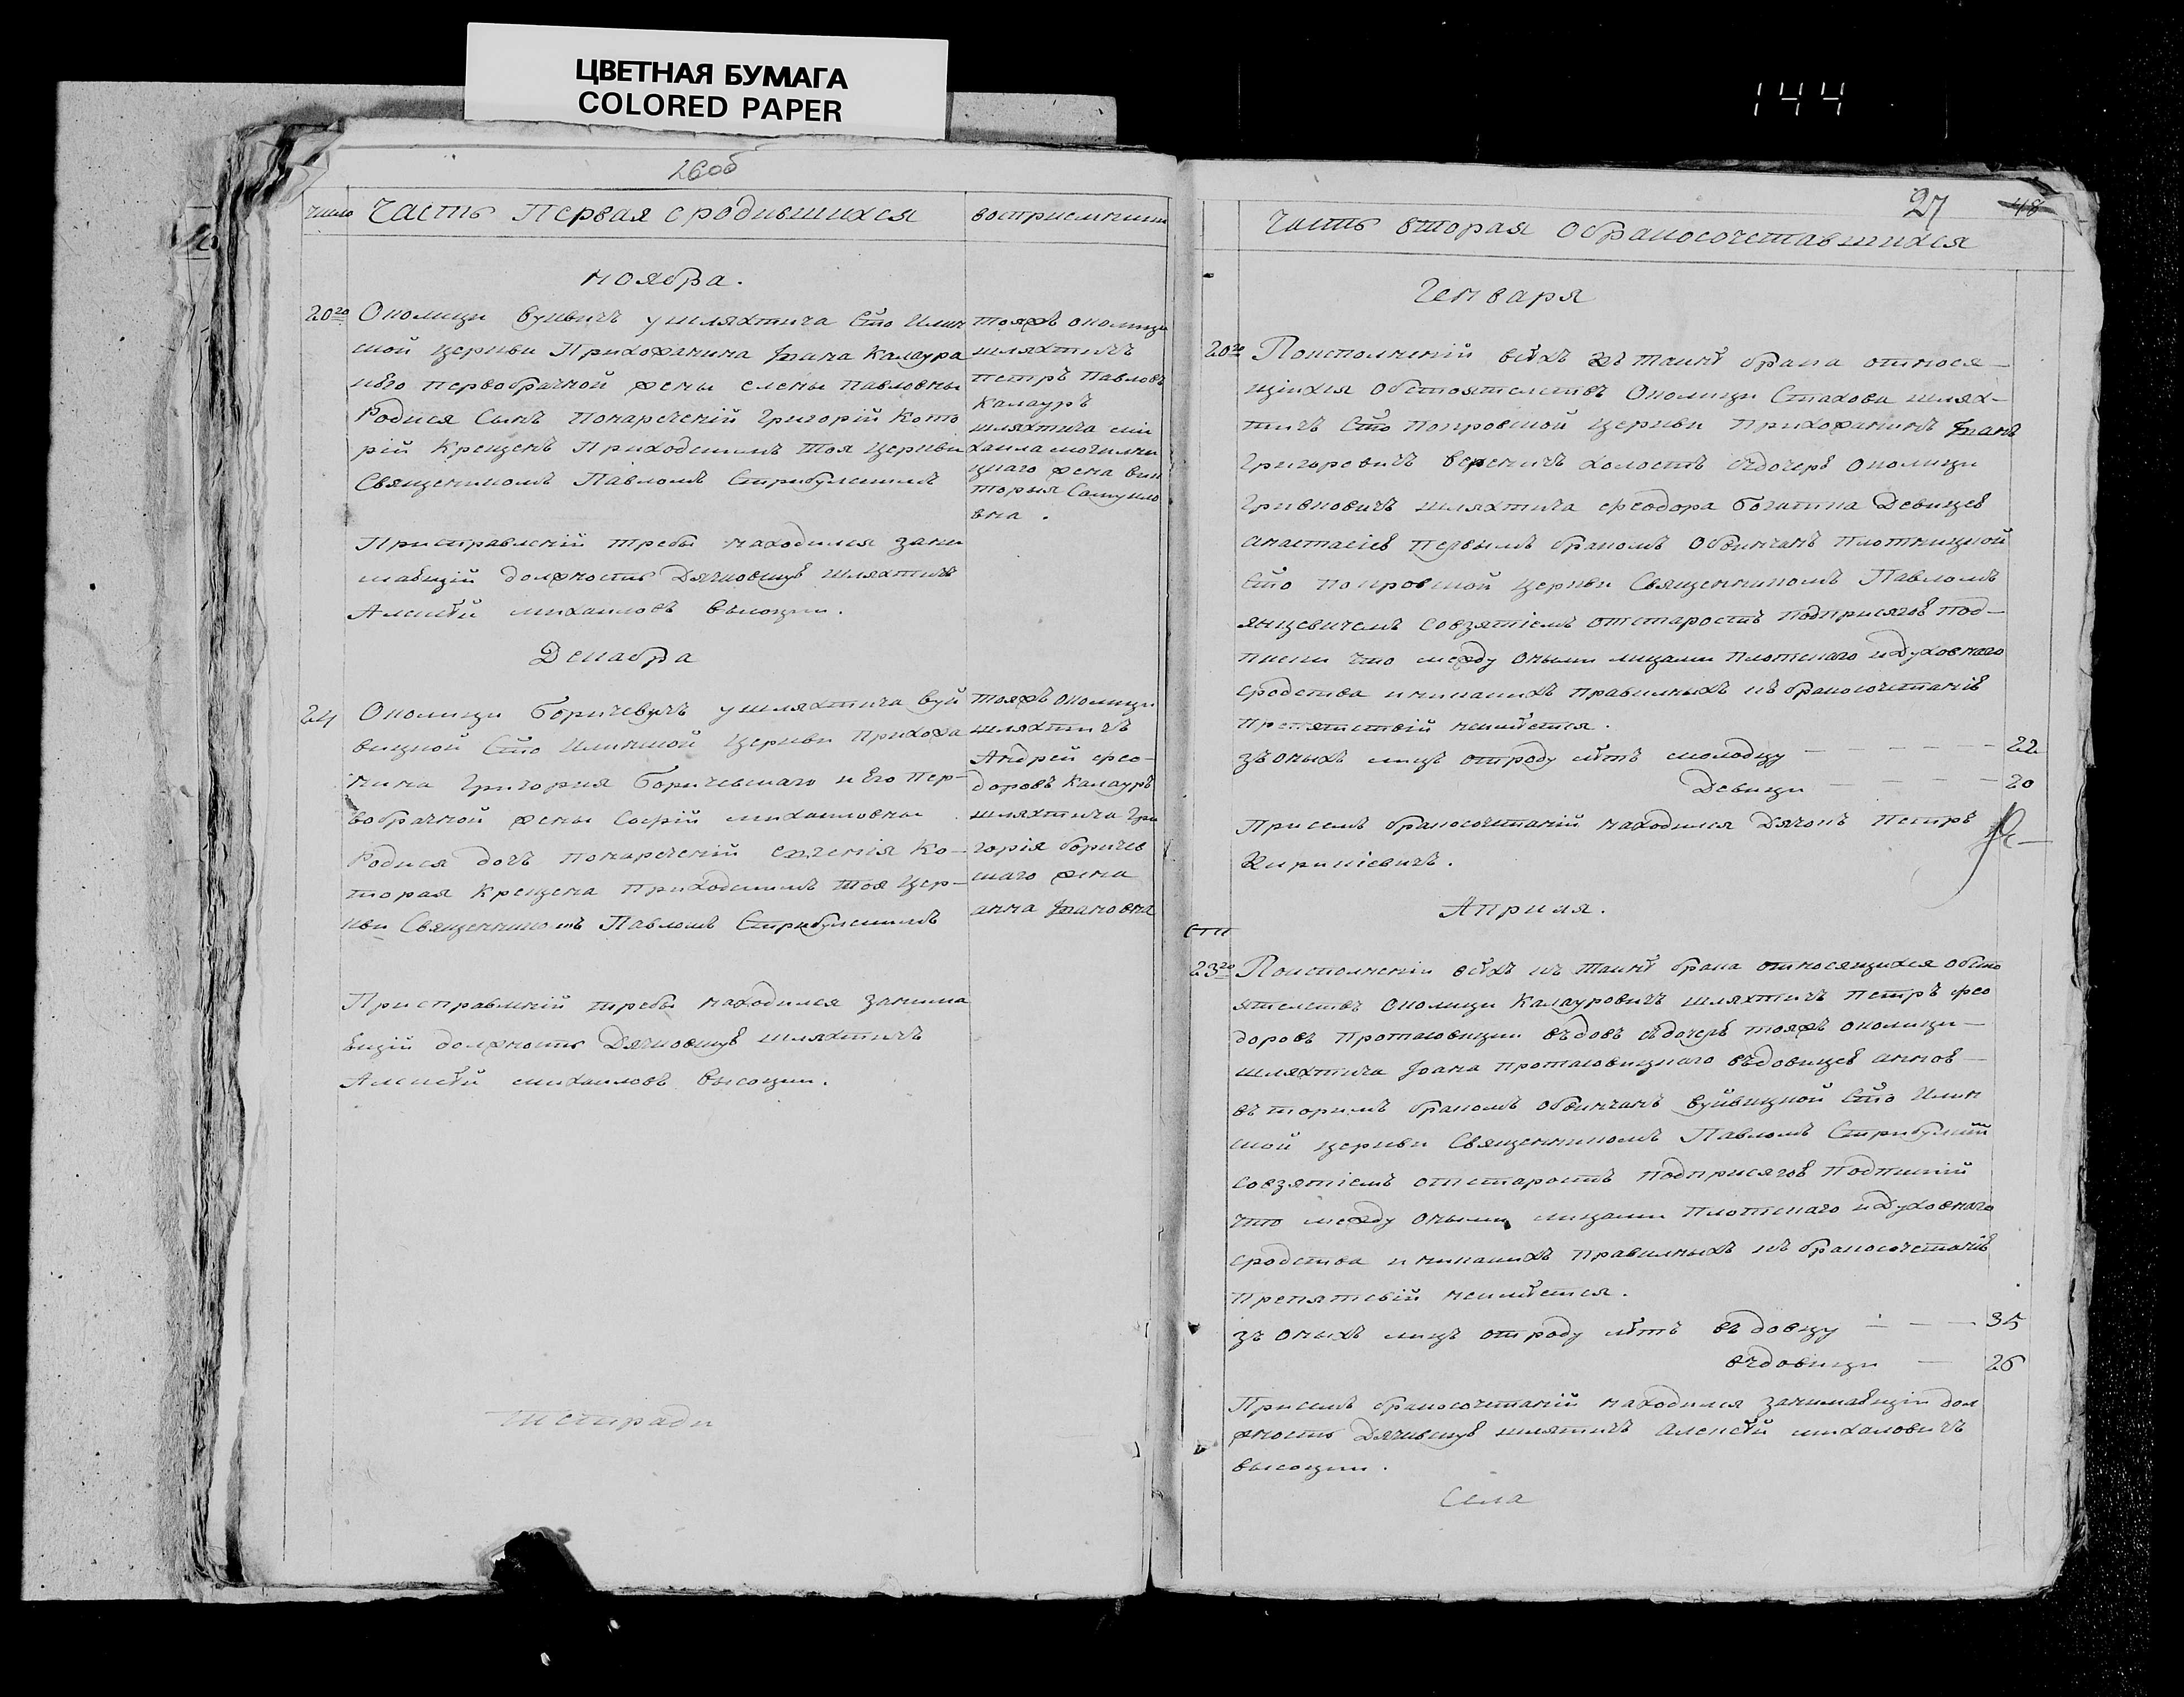 ЦВЕТНАЯ БУМАГА
COLORED PAPER
144
26об
число Часть Первая о родившихся восприемники
ноября.
20го Околицы Вуивичъ у шляхтича Сто Илин
ской Церкви Прихожанина Іоана Калаура
иЕго первобрачной жены елены Павловны
Родися Сынъ Понареченій Григорій Кото
рій Крещенъ Приходскимъ Тоя Церкви
Священикомъ Павломъ Стрибулскимъ
тояжъ околицы
шляхтичъ
петръ Павловъ
Калауръ
шляхтича ми
хаила
цкаго жена вик
торыя Самуило
вна.
Присправленій требы находился зани
мавщій должность Дячковскую Шляхтичъ
Алексѣй михаиловъ высоцки.
Декабра
24 Околицы Боричевичъ у шляхтича Вуй
вицкой Сто Илинской Церкви Прихожа
нина Григория Боричевскаго и Его пер-
вобрачной жены Софій михаиловны
Родися дочъ понареченій Ко-
торая Крещена Приходскимъ тоя Цер-
кви Священникомъ Павломъ Стрибулскимъ
тояжъ околицы
шляхтичъ
Андрей фео-
доровъ Калауръ
шляхтича Гри
горія боричев
скаго жена
анна Іоановна
Присправленій требы находился занима
вщій должность Дячковскую шляхтичъ
Алексѣй михаиловъ высоцки.
тетради
27 48
Часть вторая обракосочетавшихся
Генваря
20го Поисполненій всѣхъ къ таинѣ брака относя-
щихся Обстоятелствъ Околицы Стахова шлях-
тичъ Сто Покровской Церкви прихожанинъ Іоанъ
Григоревичъ вереничъ холостъ здочерю околицы
Гривковичъ шляхтича феодора богатика Девицею
анастасіею первымъ бракомъ Обвѣнчанъ Плотницкой
Сто покровской церкви Священникомъ Павломъ
янцевичемъ совзятіемъ отстаростъ подприсягою под-
писки что между оными лицами плотскаго идуховнаго
сродства иникакихъ правилныхъ къ бракосочетанію
препятствій неимѣется.
зъ оныхъ лицъ отроду лѣтъ молодцу — — — — — 22
Девицы — — — — 20
Присемъ бракосочетаній находился Дячокъ Петръ
Кирикіевичъ.
Априля.
23го Поисполненіи всѣхъ къ таинѣ брака относящихся обсто
ятелствъ околицы Калауровичъ шляхтичъ петръ фео
доровъ протасовицки въдовъ здочерю тояжъ околицы-
шляхтича Іоана протасовицкаго въдовицею анною-
въторимъ бракомъ обвѣнчанъ вуйвицкой Сто Илин
ской церкви Священникомъ Павломъ Стрибулским
совзятіемъ отстаростъ подприсягою подпискій
что между оными лицами плотскаго идуховнаго
сродства и никакихъ правилныхъ къ бракосочетанію
препятсвій неимѣется.
зъ оныхъ лицъ отроду лѣтъ въ довцу — — — 35
въдовицы — 26
Присемъ бракосочетаній находился занимавщіи дол
жность Дячквскую шлятичъ алексѣй михаловичъ
высоцки.
Села